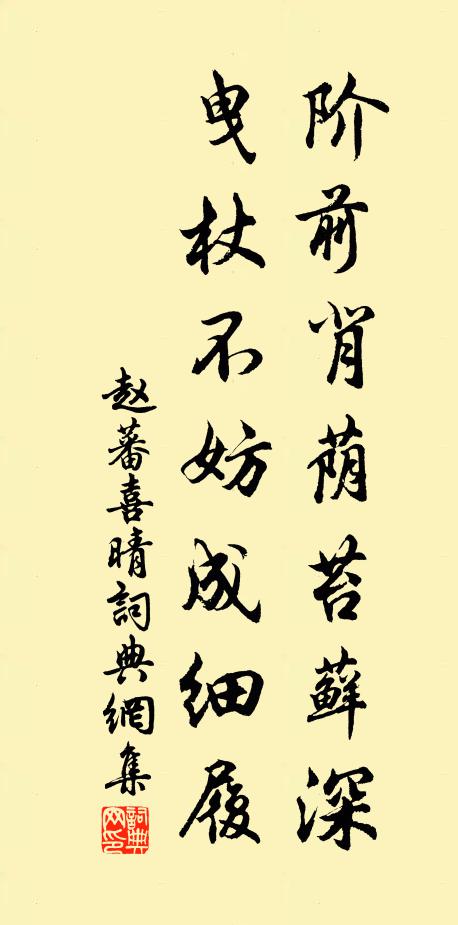 阶前背荫苔藓深
曳杖不妨成细履
赵蕃喜晴詞典網集
詞典
网印